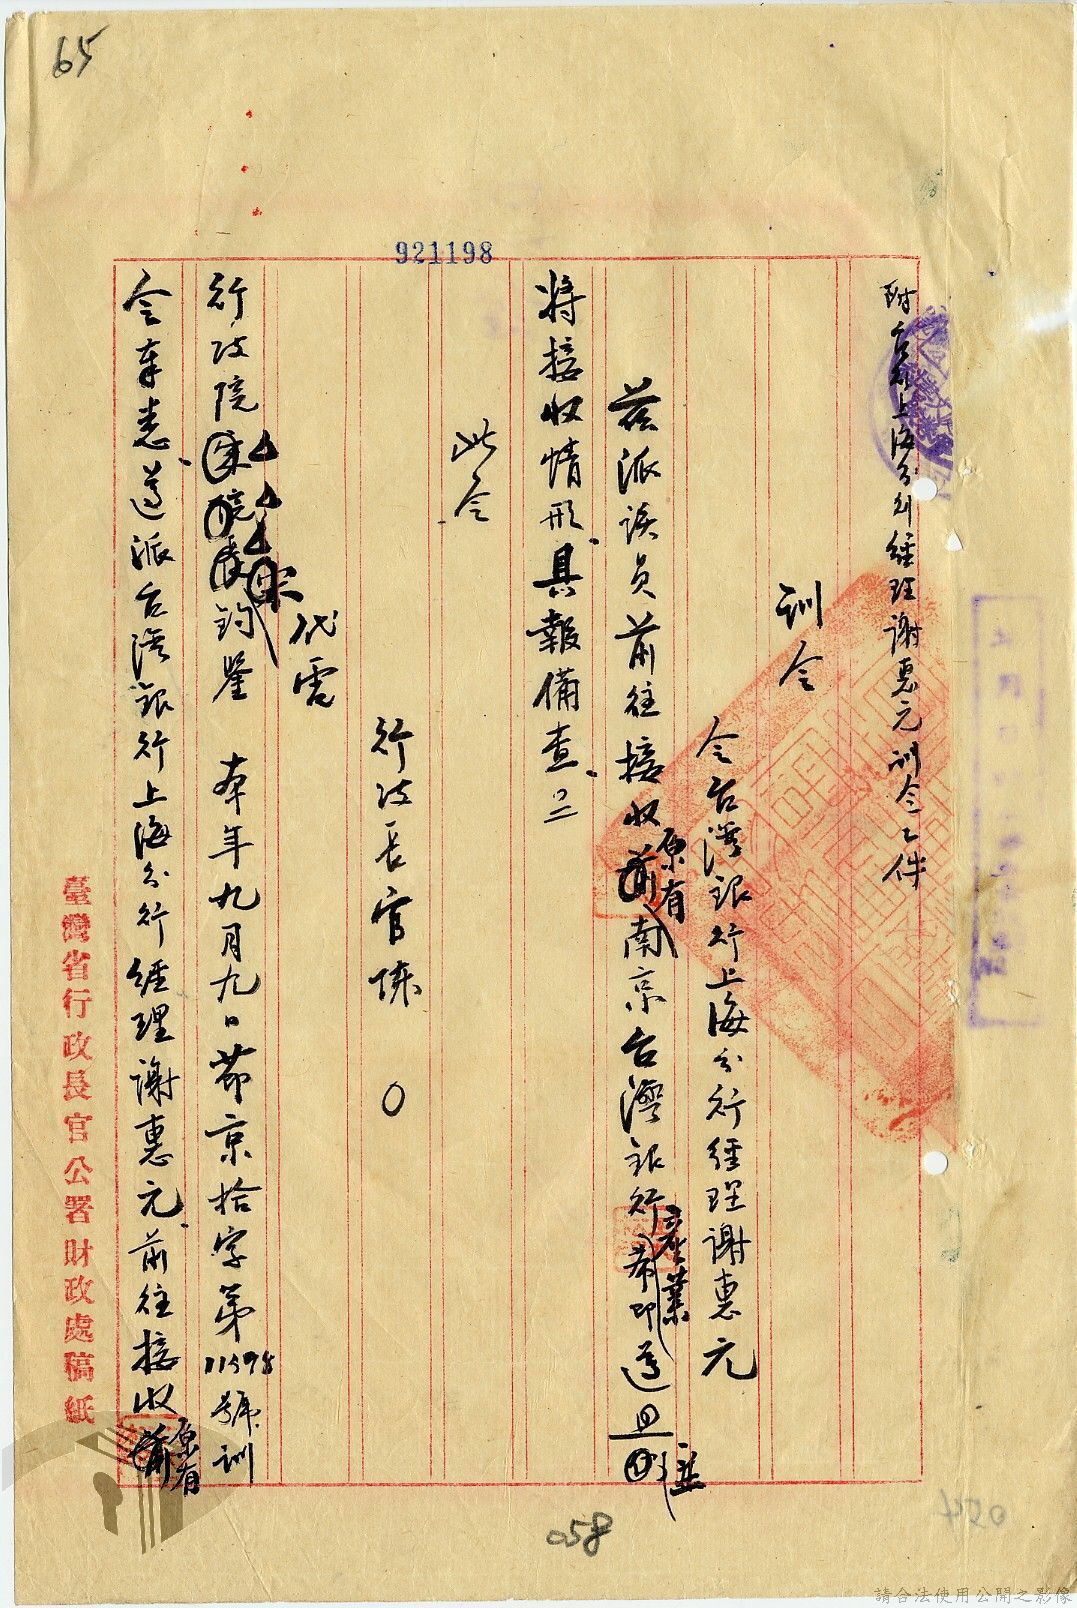 65
921198
附台銀上海分行經理謝惠元訓令乙件
訓令
令台灣銀行上海分行經理謝惠元
茲派該員前往接收原有南京台灣銀行產業希即遵照並
將接收情形具報備查
此令
行政長官陳○
代電
行政院宋鈞鑒 本年九月九日節京拾字第11598號訓
令奉悉遵派台灣銀行上海分行經理謝惠元前往接收原有
臺灣省行政長官公署財政處稿紙
058
請合法使用公開之影像